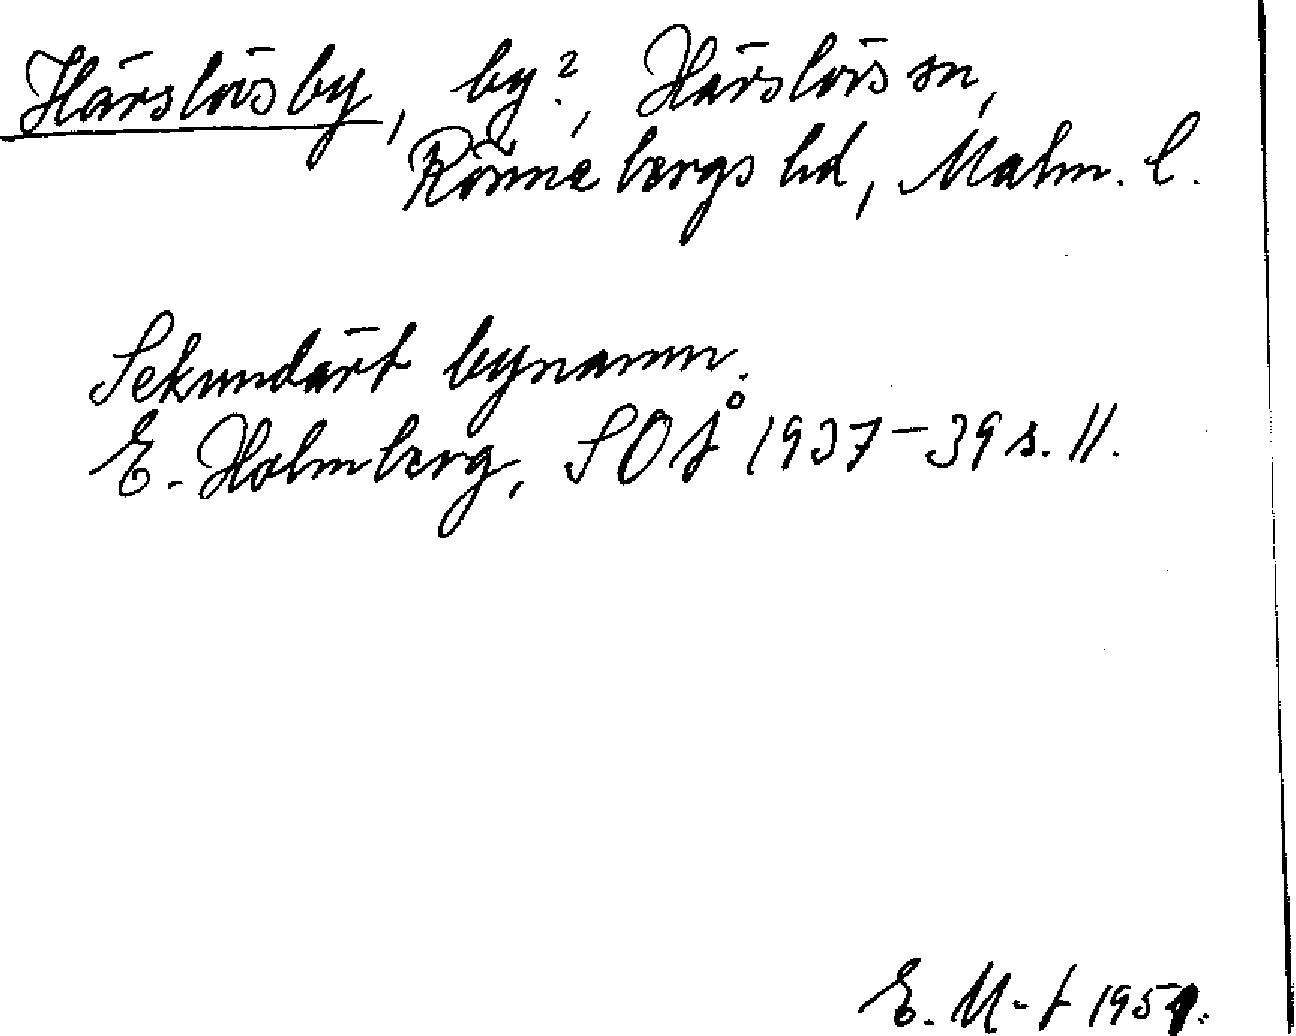 Härslövsby, by?, Härslövs sn,
Rönnebergs hd, Malm. l.
Sekundärt bynamn.
E. Holmberg, SOÅ 1937-39 s. 11.
E. M-t